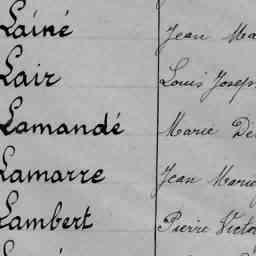 Lainé Jean Ma
Lair Louis Josep
Lamandé Marie Dé
Lamarre Jean Marie
Lambert Pierre Victo